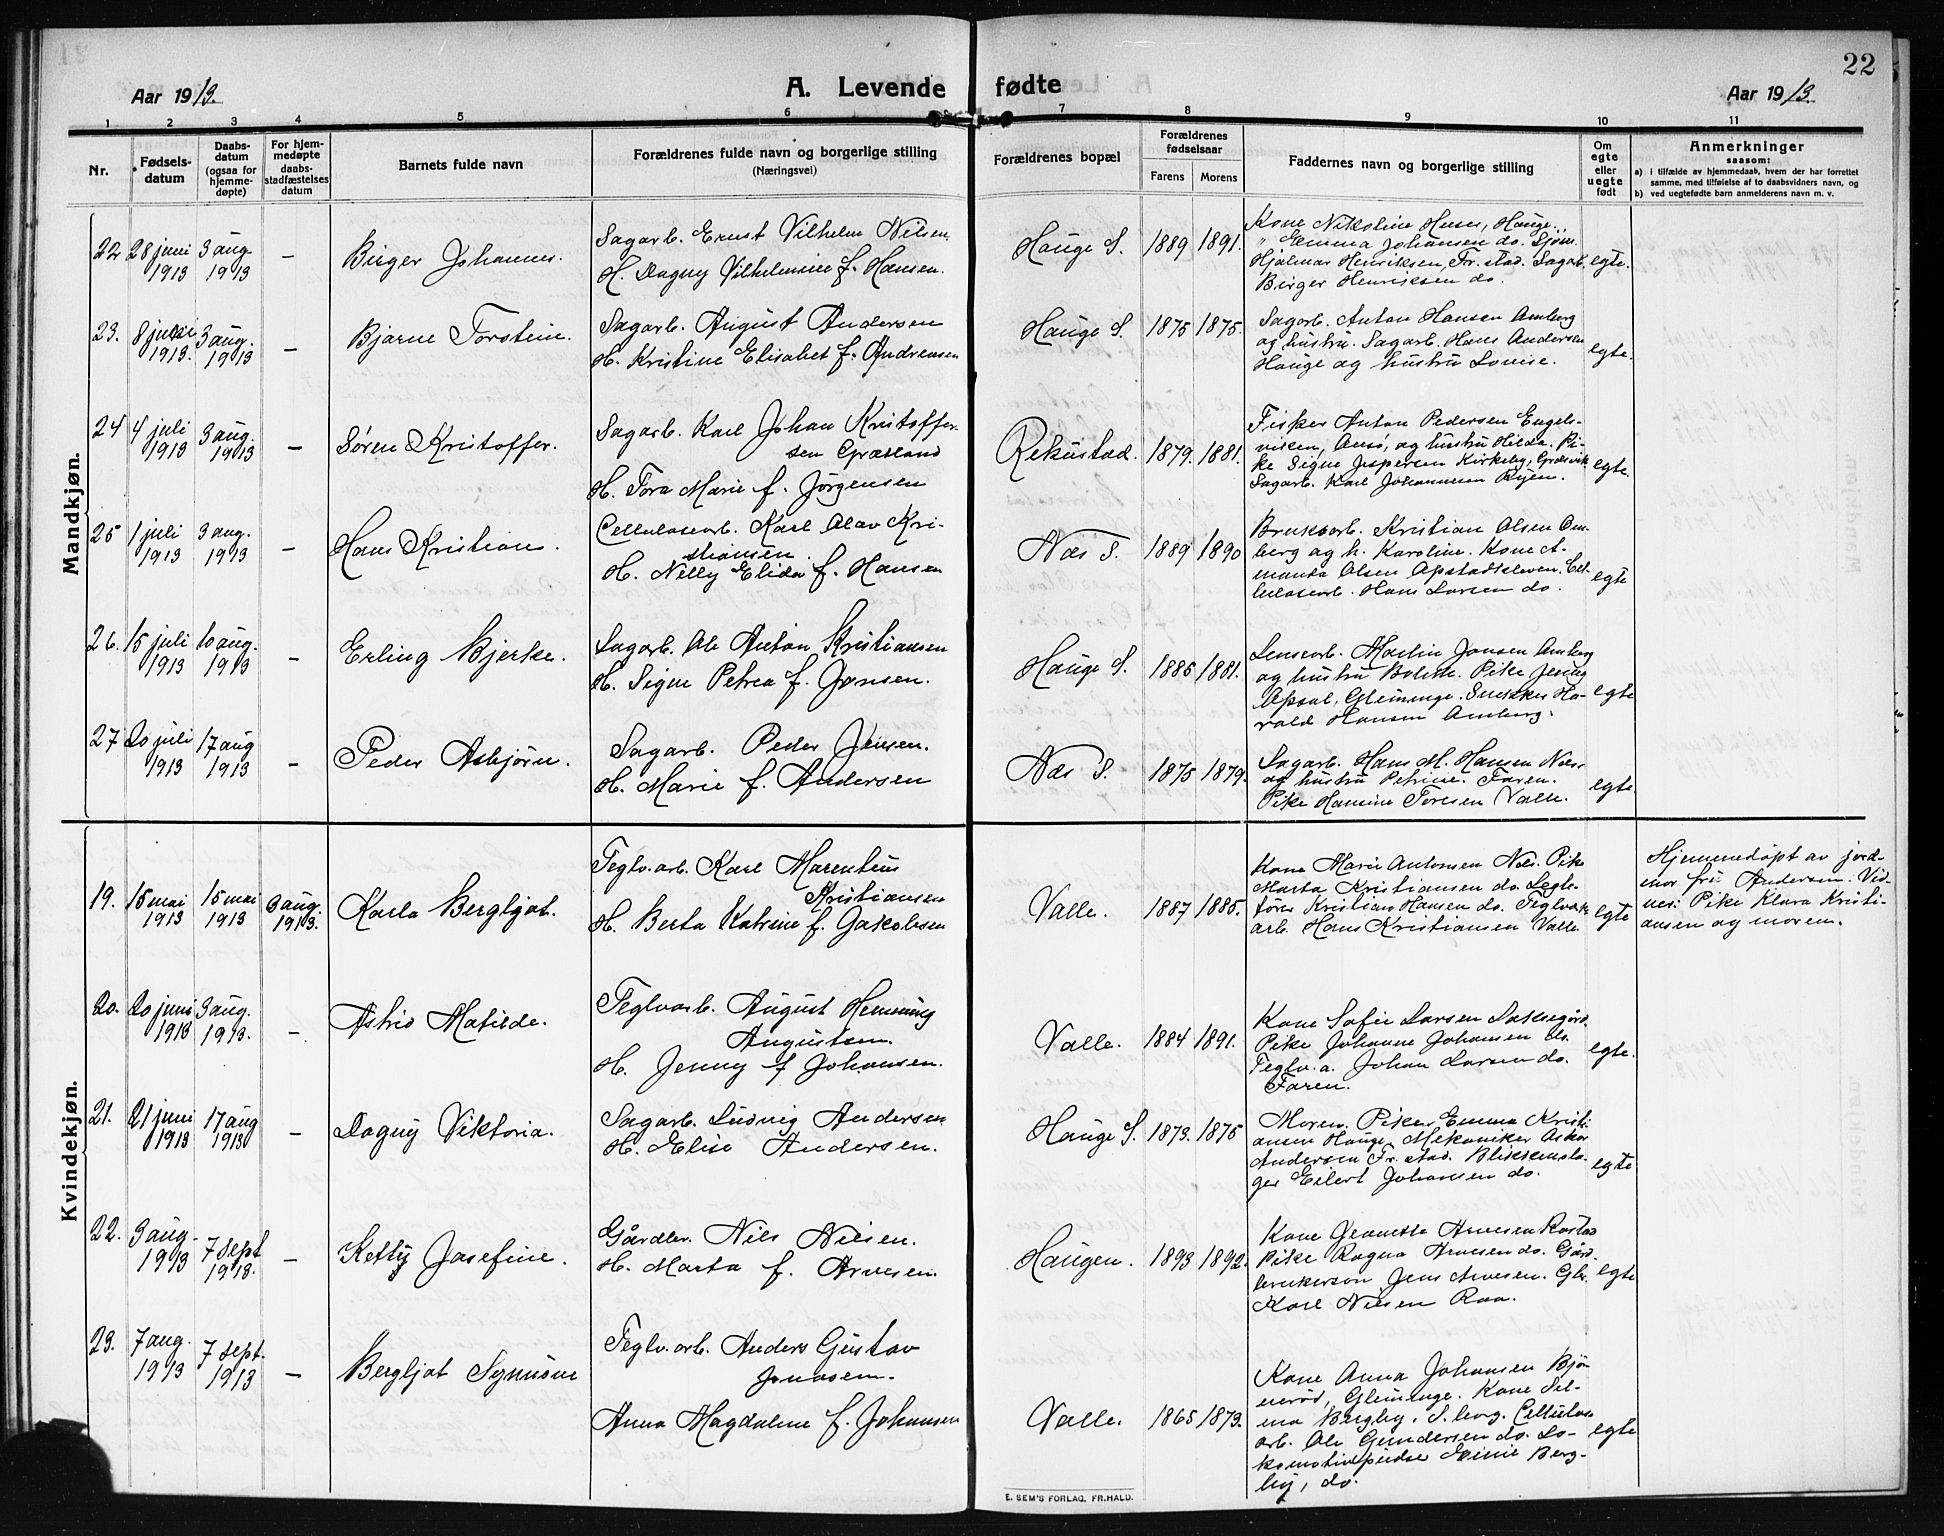 22
Aar 1913.
A. Levende fødte
Aar 1913.
1 2 3 4 5 6 7 8 9 10 11
Nr.
Fødsels-
datum
Daabs-
datum
(ogsaa for
hjemme-
døpte)
For hjem-
medøpte
daabs-
stadfæstelses
datum
Barnets fulde navn
Forældrenes fulde navn og borgerlige stilling
(Næringsvei)
Forældrenes bopæl
Forældrenes
fødselsaar
Farens Morens
Faddernes navn og borgerlige stilling
Om
egte
eller
uegte
født
Anmerkninger
saasom:
a) i tilfælde av hjemmedaab, hvem der har forrettet
samme, med tilføielse af to daabsvidners navn, og
b) ved uegtefødte barn anmelderens navn m. v.
Mandkjøn.
22 28 juni 1913
3 aug. 1913
—
Birger Johannes.
Sagarb. Ernst Vilhelm Nilsen.
H. Dagny Vilhelmine f. Hansen.
Hauge S. 1889 1891.
Kone Nikoline Huser, Hauge.
" Emma Johansen do. Sjøm.
Hjalmar Henriksen, Fr.stad. Sagarb.
Birger Henriksen do.
egte.
23. 8 juli 1913.
3 aug. 1913
—
Bjarne Torstein.
Sagarb. August Andersen
H. Kristine Elisabet f. Andreasen
Hauge S. 1875 1875.
Sagarb. Anton Hansen Amberg
og hustru. Sagarb. Hans Andersen
Hauge og hustru Lovise.
egte.
24 4 juli 1913
3 aug. 1913
—
Søren Kristoffer.
Sagarb. Karl Johan Kristoffer-
sen Græsland
H. Tora Marie f. Jørgensen
Rekustad. 1879. 1881.
Fisker Anton Pedersen Engels-
viken, Onsø, og hustru Hilda. Pi-
ke Signe Jespersen Kirkeby, Græsvik
Sagarb. Karl Johannesen Ryen.
egte.
25 1 juli 1913
3 aug. 1913
—
Hans Kristian.
Cellulosearb. Karl Olav Kri-
stiansen.
H. Nelly Elida f. Hansen
Næs S. 1889 1890
Bruksarb. Kristian Olsen Om-
berg og h. Karoline. Kone A-
manda Olsen Apstadkleven. Cel-
lulosearb. Hans Larsen do.
egte
26. 15 juli 1913
10 aug. 1913
—
Erling Bjerke.
Sagarb. Ole Anton Kristiansen
H. Signe Petrea f. Jansen.
Hauge S. 1885 1881.
Lensearb. Martin Jansen Amberg
og hustru Bolette. Pike Jenny
Opsal, Glemminge. Snekker Ha-
rald Hansen Amberg.
egte
27 20 juli 1913
17 aug 1913
—
Peder Asbjørn.
Sagarb. Peder Jensen.
H. Marie f. Andersen
Næs S. 1875 1879.
Sagarb. Hans M. Hansen Næs
og hustru Petrine. Faren.
Pike Hansine Toresen Valle.
egte
Kvindekjøn.
19. 15 mai 1913
15 mai 1913
3 aug. 1913.
Karla Bergljot.
Teglv.arb. Karl Marentius
Kristiansen
H. Berta Katrine f. Jakobsen
Valle. 1887 1885.
Kone Marie Antonsen Næs. Pike
Marta Kristiansen do. Legt-
fører Kristian Hansen do. Teglverk
arb. Hans Kristiansen Valle
egte
Hjemmedøpt av jord-
mor frk. Andersen. Vid-
nes: Pike Klara Kristi-
ansen og moren.
20. 20 juni 1913
3 aug. 1913.
—
Astrid Matilde.
Teglvarb. August Henning
Augustsen.
H. Jenny f Johansen.
Valle. 1884 1891.
Kone Sofie Larsen
Pike Johanne Johansen do.
Teglv. a. Johan Larsen do.
Faren.
egte.
21. 21 juni 1913
17 aug 1913
—
Dagny Viktoria.
Sagarb. Ludvig Andersen
H. Elise Andersen.
Hauge S. 1873. 1875
Moren. Pike Emma Kristi-
ansen Hauge. Mekaniker Oskar
Andersen Fr.stad. Blikkensla-
ger Eilert Johansen do.
egte
22. 3 aug. 1913
7 sept 1913.
—
Ketty Josefine.
Gårdbr. Nils Nilsen.
H. Marta f. Arvesen.
Haugen. 1893 1892.
Kone Jeanette Arvesen Rostad
Pike Ragna Arvesen do. Gård-
brukersøn Jens Arvesen. Gbr.
Karl Nilsen Raa.
egte
23. 7 aug. 1913
7 sept. 1913
—
Bergljot Synnøve
Teglv.arb. Anders Gustav
Jonassen.
Anna Magdalene f. Johansen
Valle. 1865 1873.
Kone Anna Johansen Bjø-
nerød, Glemminge. Kone Sel-
ma Bergby, S.borg. Cellulose
arb. Ole Gundersen do. Lo-
komotivpudser Berg-
by, do.
egte
E. SEM'S FORLAG, FR.HALD.